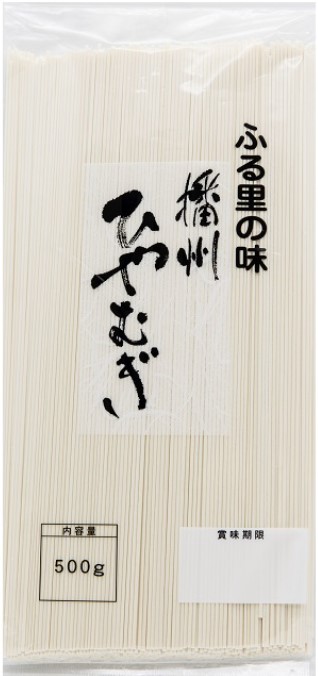 ふる里の味
播州
ひやむぎ
内容量
500g
賞味期限